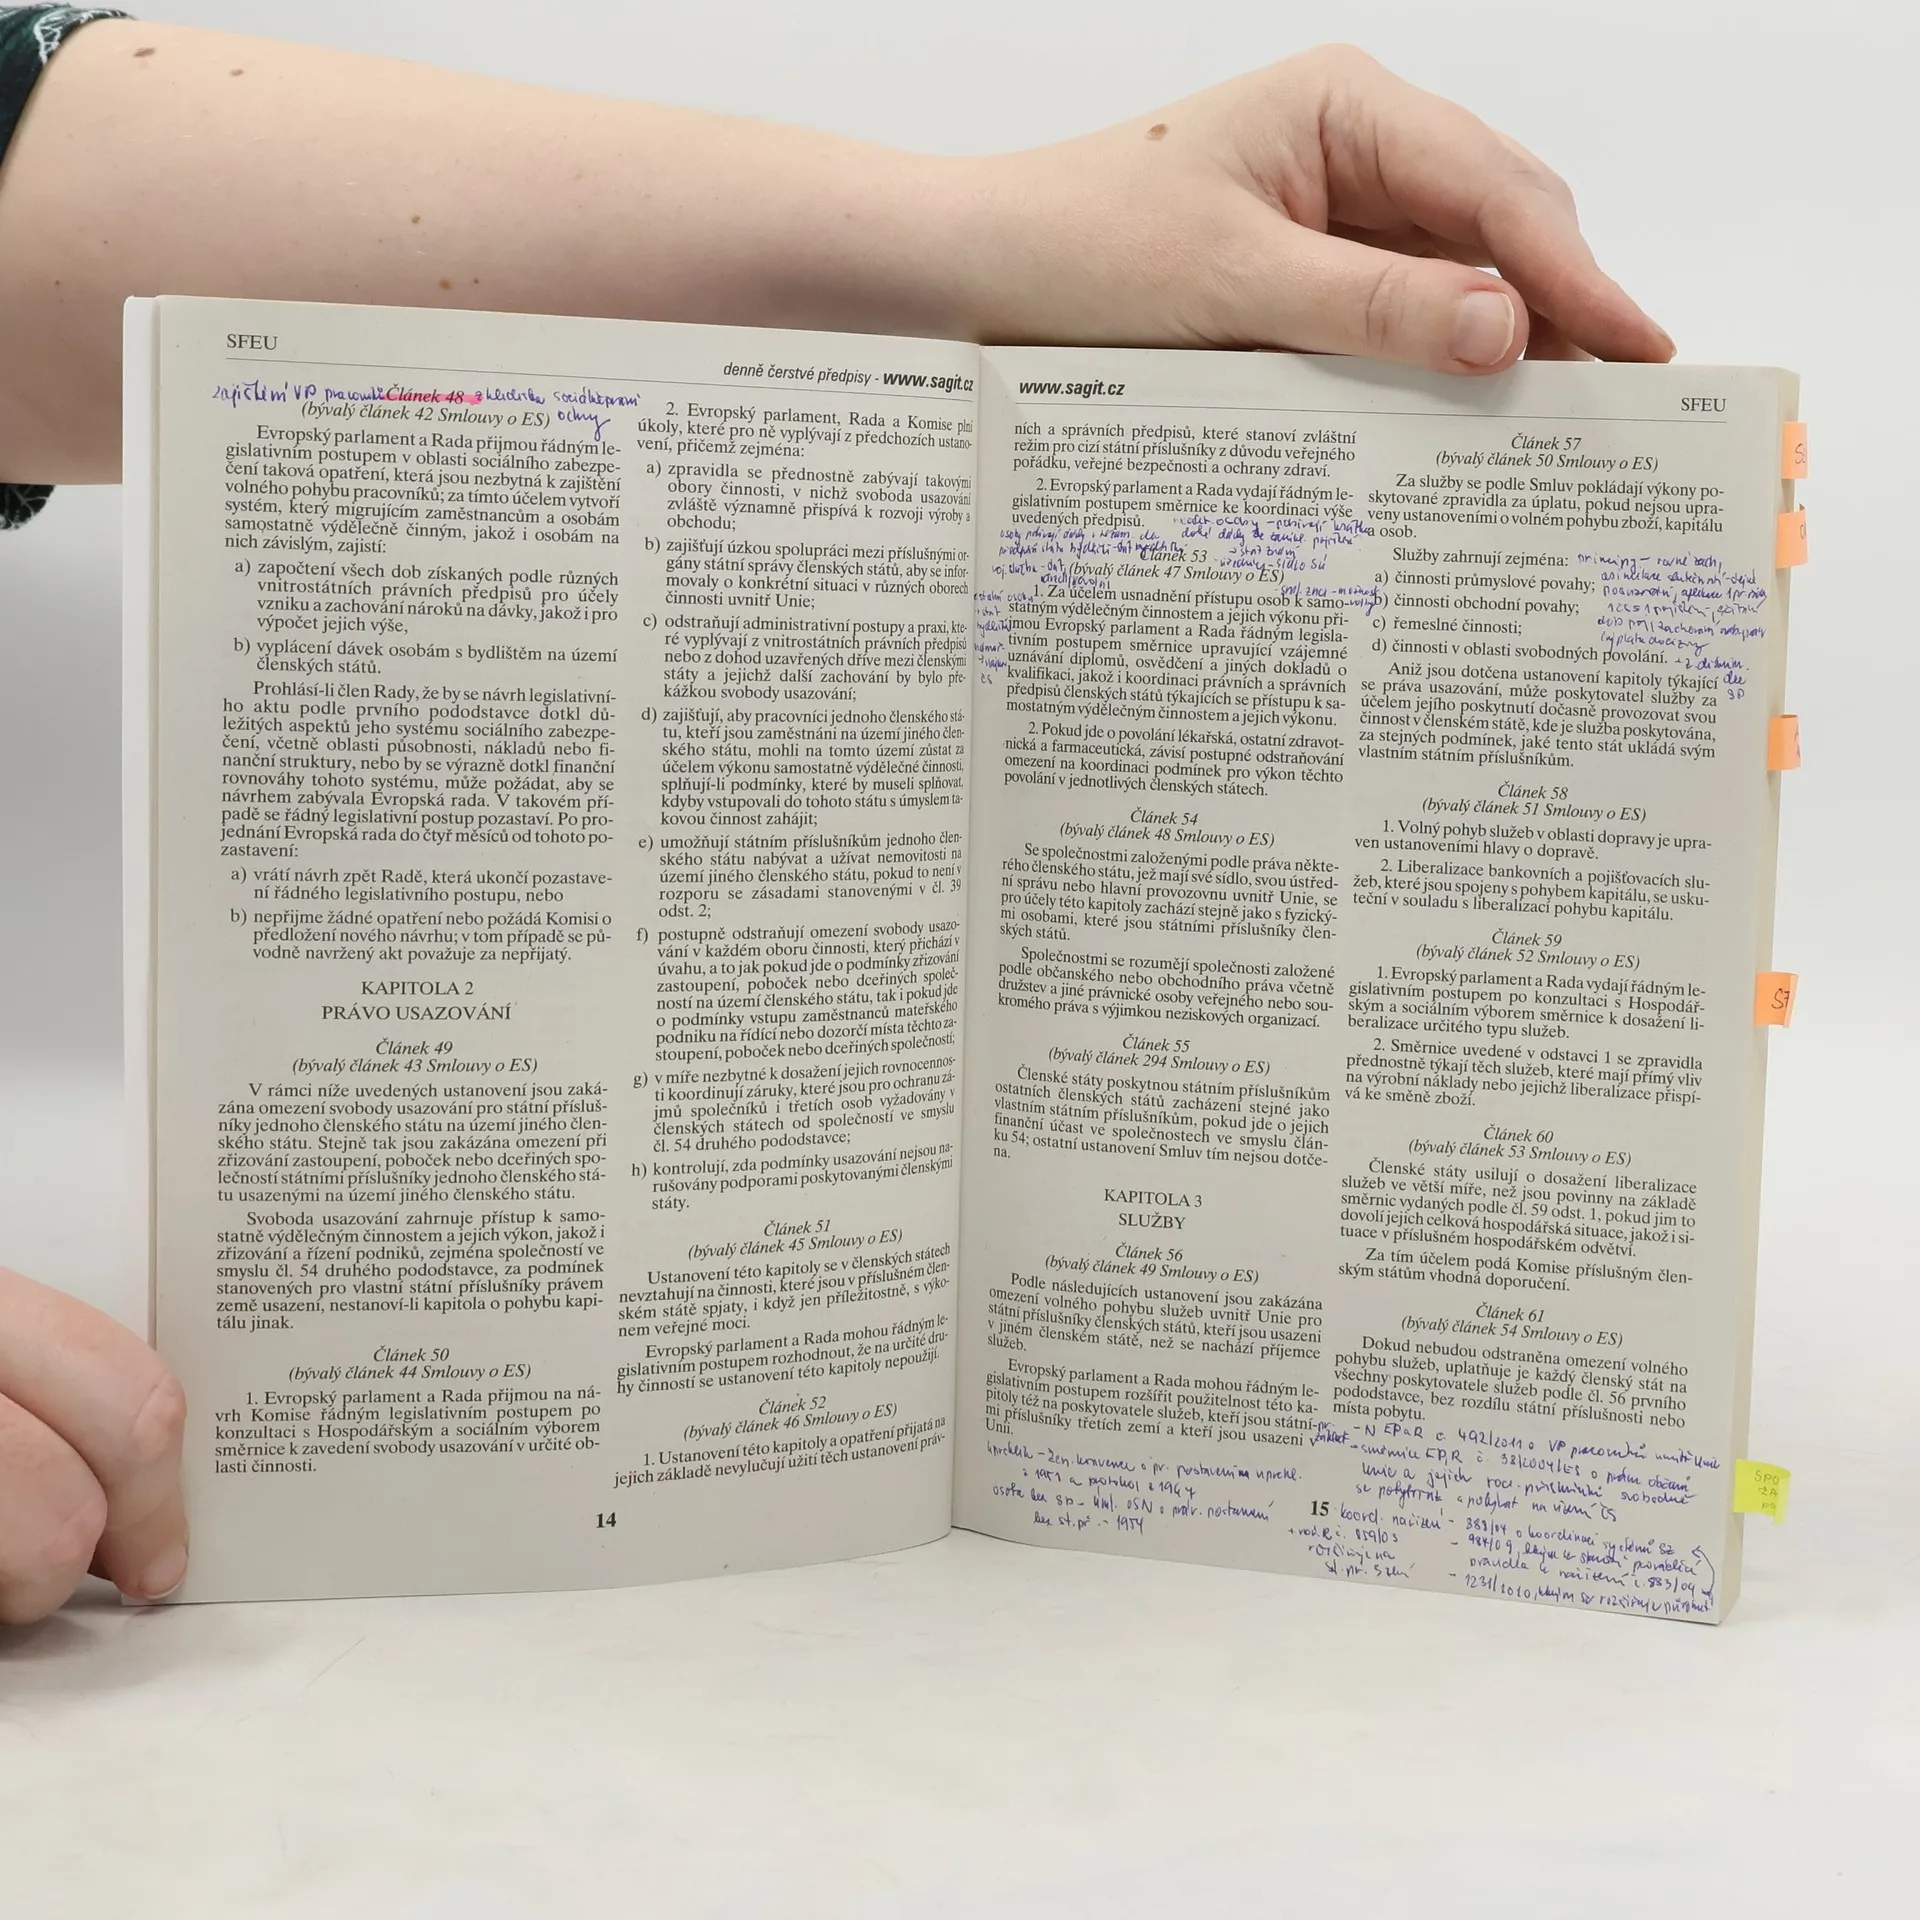 SFEU
denně čerstvé předpisy - www.sagit.cz
zajištění VP Článek 48 z hlediska
(bývalý článek 42 Smlouvy o ES)
Evropský parlament a Rada přijmou řádným le-
gislativním postupem v oblasti sociálního zabezpe-
čení taková opatření, která jsou nezbytná k zajištění
volného pohybu pracovníků; za tímto účelem vytvoří
systém, který migrujícím zaměstnancům a osobám
samostatně výdělečně činným, jakož i osobám na
nich závislým, zajistí:
a) započtení všech dob získaných podle různých
vnitrostátních právních předpisů pro účely
vzniku a zachování nároků na dávky, jakož i pro
výpočet jejich výše,
b) vyplácení dávek osobám s bydlištěm na území
členských států.
Prohlásí-li člen Rady, že by se návrh legislativní-
ho aktu podle prvního pododstavce dotkl dů-
ležitých aspektů jeho systému sociálního zabezpe-
čení, včetně oblasti působnosti, nákladů nebo fi-
nanční struktury, nebo by se výrazně dotkl finanční
rovnováhy tohoto systému, může požádat, aby se
návrhem zabývala Evropská rada. V takovém pří-
padě se řádný legislativní postup pozastaví. Po pro-
jednání Evropská rada do čtyř měsíců od tohoto po-
zastavení:
a) vrátí návrh zpět Radě, která ukončí pozastave-
ní řádného legislativního postupu, nebo
b) nepřijme žádné opatření nebo požádá Komisi o
předložení nového návrhu; v tom případě se pů-
vodně navržený akt považuje za nepřijatý.
KAPITOLA 2
PRÁVO USAZOVÁNÍ
Článek 49
(bývalý článek 43 Smlouvy o ES)
V rámci níže uvedených ustanovení jsou zaká-
zána omezení svobody usazování pro státní přísluš-
níky jednoho členského státu na území jiného člen-
ského státu. Stejně tak jsou zakázána omezení při
zřizování zastoupení, poboček nebo dceřiných spo-
lečností státními příslušníky jednoho členského stá-
tu usazenými na území jiného členského státu.
Svoboda usazování zahrnuje přístup k samo-
statně výdělečným činnostem a jejich výkon, jakož i
zřizování a řízení podniků, zejména společností ve
smyslu čl. 54 druhého pododstavce, za podmínek
stanovených pro vlastní státní příslušníky právem
země usazení, nestanoví-li kapitola o pohybu kapi-
tálu jinak.
Článek 50
(bývalý článek 44 Smlouvy o ES)
1. Evropský parlament a Rada přijmou na ná-
vrh Komise řádným legislativním postupem po
konzultaci s Hospodářským a sociálním výborem
směrnice k zavedení svobody usazování v určité ob-
lasti činnosti.
2. Evropský parlament, Rada a Komise plní
úkoly, které pro ně vyplývají z předchozích ustano-
vení, přičemž zejména:
a) zpravidla se přednostně zabývají takovými
obory činnosti, v nichž svoboda usazování
zvláště významně přispívá k rozvoji výroby a
obchodu;
b) zajišťují úzkou spolupráci mezi příslušnými or-
gány státní správy členských států, aby se infor-
movaly o konkrétní situaci v různých oborech
činnosti uvnitř Unie;
c) odstraňují administrativní postupy a praxi, kte-
ré vyplývají z vnitrostátních právních předpisů
nebo z dohod uzavřených dříve mezi členskými
státy a jejichž další zachování by bylo pře-
kážkou svobody usazování;
d) zajišťují, aby pracovníci jednoho členského stá-
tu, kteří jsou zaměstnáni na území jiného člen-
ského státu, mohli na tomto území zůstat za
účelem výkonu samostatně výdělečné činnosti,
splňují-li podmínky, které by museli splňovat,
kdyby vstupovali do tohoto státu s úmyslem ta-
kovou činnost zahájit;
e) umožňují státním příslušníkům jednoho člen-
ského státu nabývat a užívat nemovitosti na
území jiného členského státu, pokud to není v
rozporu se zásadami stanovenými v čl. 39
odst. 2;
f) postupně odstraňují omezení svobody usazo-
vání v každém oboru činnosti, který přichází v
úvahu, a to jak pokud jde o podmínky zřizování
zastoupení, poboček nebo dceřiných společ-
ností na území členského státu, tak i pokud jde
o podmínky vstupu zaměstnanců mateřského
podniku na řídící nebo dozorčí místa těchto za-
stoupení, poboček nebo dceřiných společností;
g) v míře nezbytné k dosažení jejich rovnocennos-
ti koordinují záruky, které jsou pro ochranu zá-
jmů společníků i třetích osob vyžadovány v
členských státech od společností ve smyslu
čl. 54 druhého pododstavce;
h) kontrolují, zda podmínky usazování nejsou na-
rušovány podporami poskytovanými členskými
státy.
Článek 51
(bývalý článek 45 Smlouvy o ES)
Ustanovení této kapitoly se v členských státech
nevztahují na činnosti, které jsou v příslušném člen-
ském státě spjaty, i když jen příležitostně, s výko-
nem veřejné moci.
Evropský parlament a Rada mohou řádným le-
gislativním postupem rozhodnout, že na určité dru-
hy činností se ustanovení této kapitoly nepoužijí.
Článek 52
(bývalý článek 46 Smlouvy o ES)
1. Ustanovení této kapitoly a opatření přijatá na
jejich základě nevylučují užití těch ustanovení práv-
14
www.sagit.cz
SFEU
ních a správních předpisů, které stanoví zvláštní
režim pro cizí státní příslušníky z důvodu veřejného
pořádku, veřejné bezpečnosti a ochrany zdraví.
2. Evropský parlament a Rada vydají řádným le-
gislativním postupem směrnice ke koordinaci výše
uvedených předpisů.
Článek 53
(bývalý článek 47 Smlouvy o ES)
1. Za účelem usnadnění přístupu osob k samo-
statným výdělečným činnostem a jejich výkonu při-
jmou Evropský parlament a Rada řádným legisla-
tivním postupem směrnice upravující vzájemné
uznávání diplomů, osvědčení a jiných dokladů o
kvalifikaci, jakož i koordinaci právních a správních
předpisů členských států týkajících se přístupu k sa-
mostatným výdělečným činnostem a jejich výkonu.
2. Pokud jde o povolání lékařská, ostatní zdravot-
nická a farmaceutická, závisí postupné odstraňování
omezení na koordinaci podmínek pro výkon těchto
povolání v jednotlivých členských státech.
Článek 54
(bývalý článek 48 Smlouvy o ES)
Se společnostmi založenými podle práva někte-
rého členského státu, jež mají své sídlo, svou ústřed-
ní správu nebo hlavní provozovnu uvnitř Unie, se
pro účely této kapitoly zachází stejně jako s fyzický-
mi osobami, které jsou státními příslušníky člen-
ských států.
Společnostmi se rozumějí společnosti založené
podle občanského nebo obchodního práva včetně
družstev a jiné právnické osoby veřejného nebo sou-
kromého práva s výjimkou neziskových organizací.
Článek 55
(bývalý článek 294 Smlouvy o ES)
Členské státy poskytnou státním příslušníkům
ostatních členských států zacházení stejné jako
vlastním státním příslušníkům, pokud jde o jejich
finanční účast ve společnostech ve smyslu člán-
ku 54; ostatní ustanovení Smluv tím nejsou dotče-
na.
KAPITOLA 3
SLUŽBY
Článek 56
(bývalý článek 49 Smlouvy o ES)
Podle následujících ustanovení jsou zakázána
omezení volného pohybu služeb uvnitř Unie pro
státní příslušníky členských států, kteří jsou usazeni
v jiném členském státě, než se nachází příjemce
služeb.
Evropský parlament a Rada mohou řádným le-
gislativním postupem rozšířit použitelnost této ka-
pitoly též na poskytovatele služeb, kteří jsou státní-
mi příslušníky třetích zemí a kteří jsou usazeni v
Unii.
Článek 57
(bývalý článek 50 Smlouvy o ES)
Za služby se podle Smluv pokládají výkony po-
skytované zpravidla za úplatu, pokud nejsou upra-
veny ustanoveními o volném pohybu zboží, kapitálu
a osob.
Služby zahrnují zejména:
a) činnosti průmyslové povahy;
b) činnosti obchodní povahy;
c) řemeslné činnosti;
d) činnosti v oblasti svobodných povolání.
Aniž jsou dotčena ustanovení kapitoly týkající
se práva usazování, může poskytovatel služby za
účelem jejího poskytnutí dočasně provozovat svou
činnost v členském státě, kde je služba poskytována,
za stejných podmínek, jaké tento stát ukládá svým
vlastním státním příslušníkům.
Článek 58
(bývalý článek 51 Smlouvy o ES)
1. Volný pohyb služeb v oblasti dopravy je upra-
ven ustanoveními hlavy o dopravě.
2. Liberalizace bankovních a pojišťovacích slu-
žeb, které jsou spojeny s pohybem kapitálu, se usku-
teční v souladu s liberalizací pohybu kapitálu.
Článek 59
(bývalý článek 52 Smlouvy o ES)
1. Evropský parlament a Rada vydají řádným le-
gislativním postupem po konzultaci s Hospodář-
ským a sociálním výborem směrnice k dosažení li-
beralizace určitého typu služeb.
2. Směrnice uvedené v odstavci 1 se zpravidla
přednostně týkají těch služeb, které mají přímý vliv
na výrobní náklady nebo jejichž liberalizace přispí-
vá ke směně zboží.
Článek 60
(bývalý článek 53 Smlouvy o ES)
Členské státy usilují o dosažení liberalizace
služeb ve větší míře, než jsou povinny na základě
směrnic vydaných podle čl. 59 odst. 1, pokud jim to
dovolí jejich celková hospodářská situace, jakož i si-
tuace v příslušném hospodářském odvětví.
Za tím účelem podá Komise příslušným člen-
ským státům vhodná doporučení.
Článek 61
(bývalý článek 54 Smlouvy o ES)
Dokud nebudou odstraněna omezení volného
pohybu služeb, uplatňuje je každý členský stát na
všechny poskytovatele služeb podle čl. 56 prvního
pododstavce, bez rozdílu státní příslušnosti nebo
místa pobytu.
- N EPaR č. 492/2011 o VP pracovníků uvnitř Unie
- směrnice EP, R č. 38/2004/ES o
15